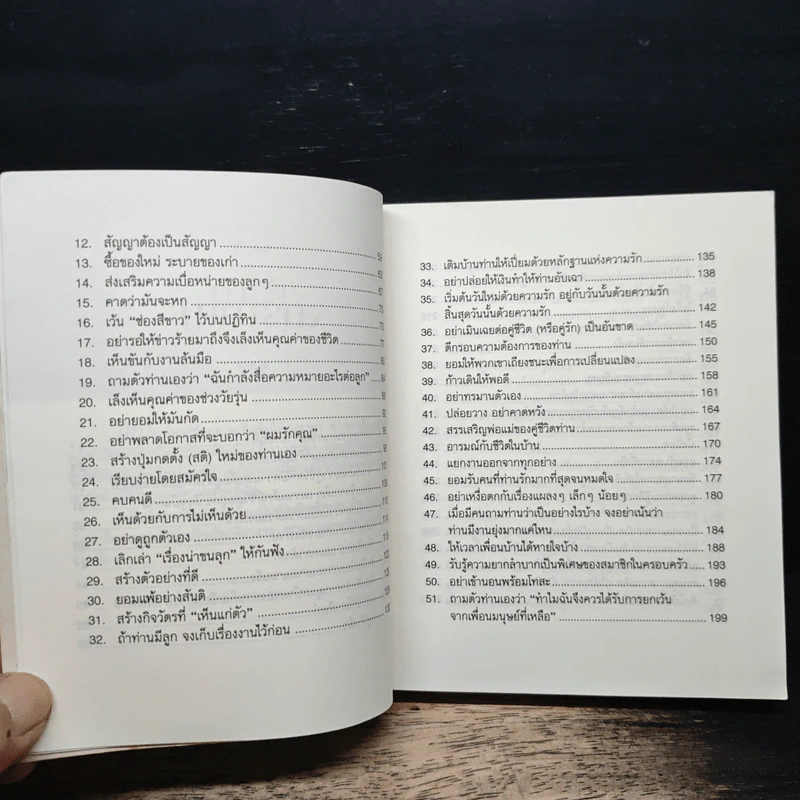 12. สัญญาต้องเป็นสัญญา
13. ซื้อของใหม่ ระบายของเก่า
14. ส่งเสริมความเบื่อหน่ายของลูกๆ
15. คาดว่ามันจะหก
16. เว้น “ช่องสีขาว” ไว้บนปฏิทิน
17. อย่ารอให้ข่าวร้ายมาถึงจึงเล็งเห็นคุณค่าของชีวิต
18. เห็นขันกับงานล้นมือ
19. ถามตัวท่านเองว่า “ฉันกำลังสื่อความหมายอะไรต่อลูก”
20. เล็งเห็นคุณค่าของช่วงวัยรุ่น
21. อย่ายอมให้มันกัด
22. อย่าพลาดโอกาสที่จะบอกว่า “ผมรักคุณ”
23. สร้างปุ่มกดตั้ง (สติ) ใหม่ของท่านเอง
24. เรียบง่ายโดยสมัครใจ
25. คบคนดี
26. เห็นด้วยกับการไม่เห็นด้วย
27. อย่าดูถูกตัวเอง
28. เลิกเล่า “เรื่องน่าขนลุก” ให้กันฟัง
29. สร้างตัวอย่างที่ดี
30. ยอมแพ้อย่างสันติ
31. สร้างกิจวัตรที่ “เห็นแก่ตัว”
32. ถ้าท่านมีลูก จงเก็บเรื่องงานไว้ก่อน
33. เติมบ้านท่านให้เปี่ยมด้วยหลักฐานแห่งความรัก 135
34. อย่าปล่อยให้เงินทำให้ท่านอับเฉา 138
35. เริ่มต้นวันใหม่ด้วยความรัก อยู่กับวันนั้นด้วยความรัก
สิ้นสุดวันนั้นด้วยความรัก 142
36. อย่าเมินเฉยต่อคู่ชีวิต (หรือคู่รัก) เป็นอันขาด 145
37. ตีกรอบความต้องการของท่าน 150
38. ยอมให้พวกเขาเถียงชนะเพื่อการเปลี่ยนแปลง 155
39. ก้าวเดินให้พอดี 158
40. อย่าทรมานตัวเอง 161
41. ปล่อยวาง อย่าคาดหวัง 164
42. สรรเสริญพ่อแม่ของคู่ชีวิตท่าน 167
43. อารมณ์กับชีวิตในบ้าน 170
44. แยกงานออกจากทุกอย่าง 174
45. ยอมรับคนที่ท่านรักมากที่สุดจนหมดใจ 177
46. อย่าเหงื่อตกกับเรื่องแผลงๆ เล็กๆ น้อยๆ 180
47. เมื่อมีคนถามท่านว่าเป็นอย่างไรบ้าง จงอย่าเน้นว่า
ท่านมีงานยุ่งมากแค่ไหน 184
48. ให้เวลาเพื่อนบ้านได้หายใจบ้าง 188
49. รับรู้ความยากลำบากเป็นพิเศษของสมาชิกในครอบครัว 193
50. อย่าเข้านอนพร้อมโทสะ 196
51. ถามตัวท่านเองว่า “ทำไมฉันจึงควรได้รับการยกเว้น
จากเพื่อนมนุษย์ที่เหลือ” 199